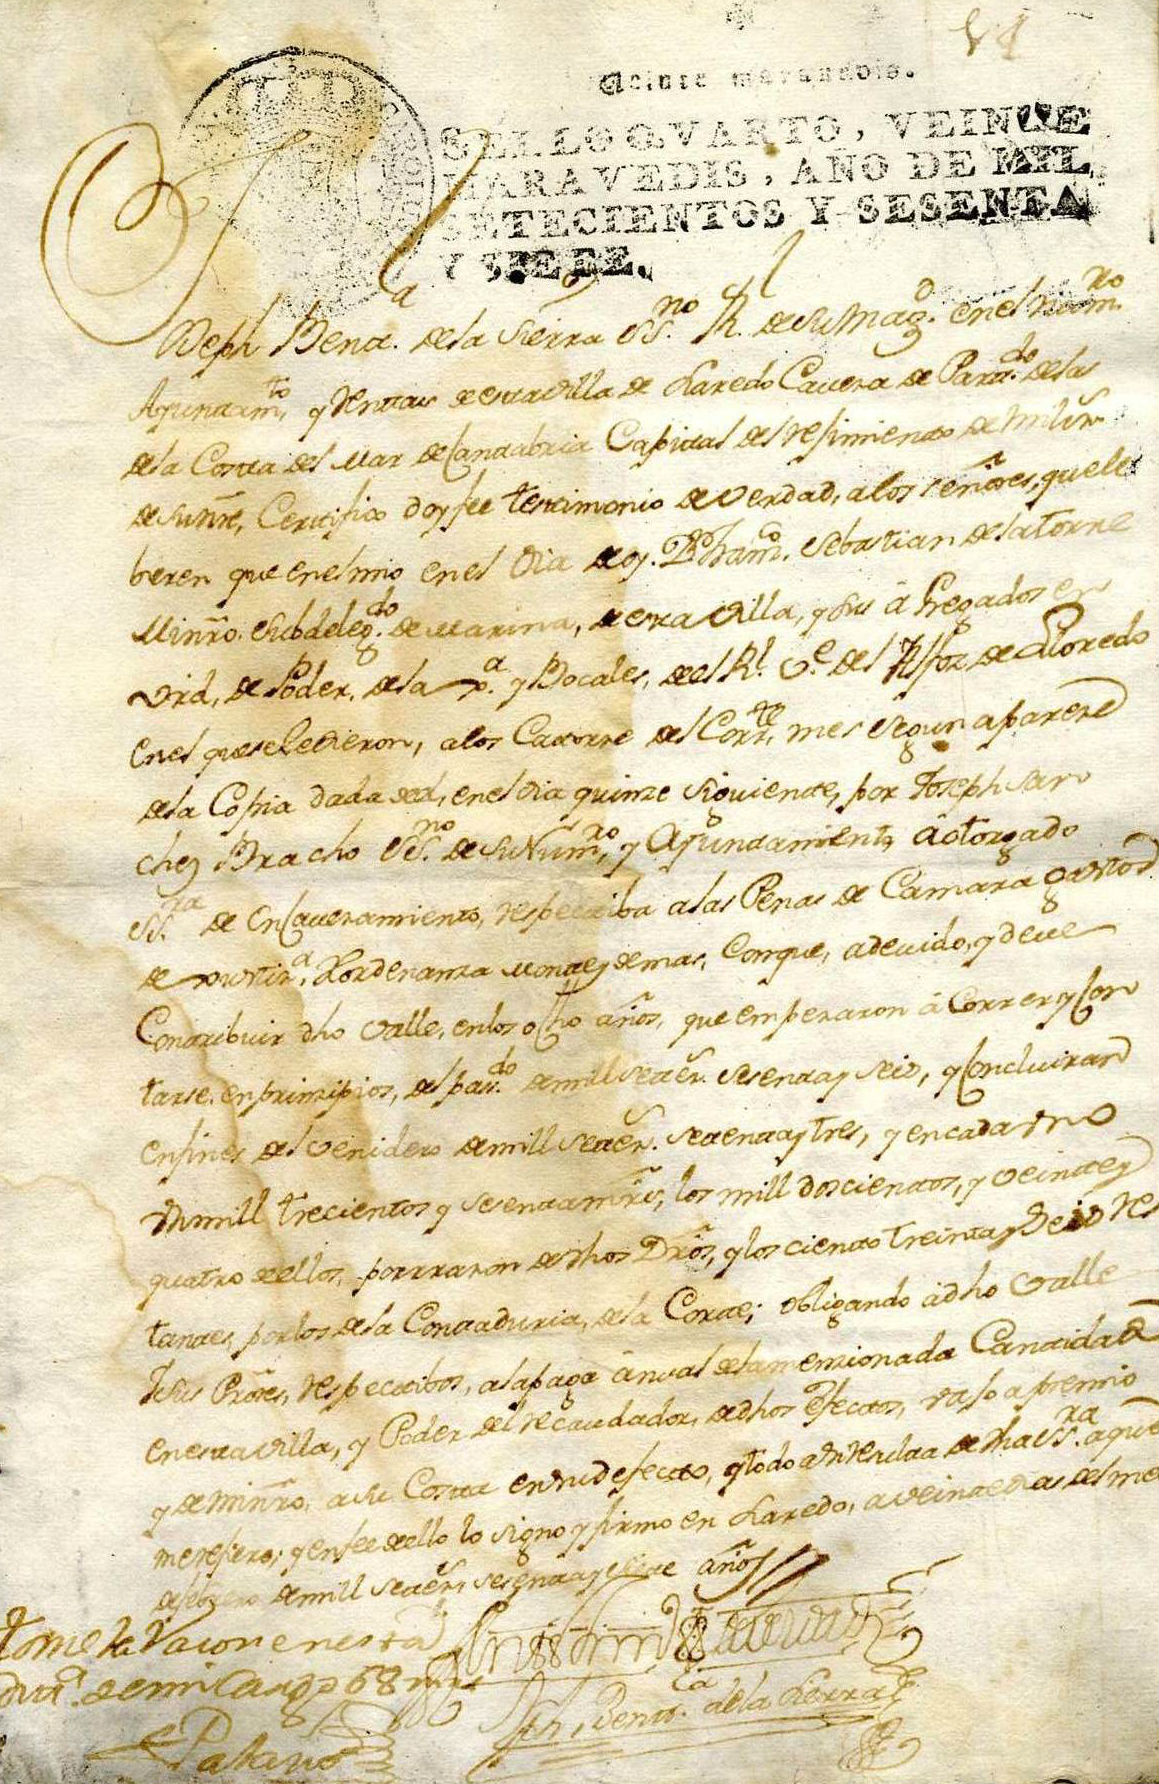 Veinte maravedis.
SELLO QVARTO, VEINTE
MARAVEDIS, AÑO DE MIL
SETECIENTOS Y SESENTA
Y SIETE.
Joseph Bena. de la Sierra SS.no R. de su Mag.d en el Num.ro
Ayuntam.to, y Rentas de esta villa de Laredo Cavera de Part.do de las
de la Costa del Mar de Cantabria Capital del rejimiento de Milis.
de su nre, Certifico doy fee testimonio de verdad, a los señores, que le
beren que en el mio en el dia de oy. Dn Fran.co Sebastian de la torre
Minro. Subdeleg.do de Marina, de esta villa, y sus Agregados en
vird, de Poder, de la Jª. y Bocales, del Rl. Ve. del Alfoz de Lloredo
en el que se le dieron, a los Catorze del Corr.te, mes segun aparere
de la Copia dada del, en el dia quinze siguiente, por Joseph San
chez Bracho SS.no de su Num.ro, y Ayuntamiento a otorgado
SS.ra de encaveramiento, respectiba a las Penas de Camara gastos
de Justiz.a, Hordenanza Monte y demas, Conque, a devido, y deve
Contribuir dho Valle, en los ocho años, que emperaron á Correr y Con
tarse, en prinzipios, del pas.do de mill seteçs. sesenta y seis, y Concluiran
en fines del venidero de mill seteçs. setenta y tres, y en cada uno
mill trecientos y sesenta mrs, los mill doscientos, y veinte y
quatro de ellos, por rrazon de dhos Dros, y los ciento treinta y seis res
tantes, por los de la Contaduria, de la Corte; obligando a dho Valle
y sus Prores, respectibos, a la paga anual de la menzionada Cantidad
en esta villa, y Poder del recaudador, de dhos efectos, vajo apremio
y de Minro, a su Costa en su defecto, y todo a de resulta de dha SS.ra a que
me refiero; y en fee de ello lo signo y firmo en Laredo, a veinte dias del mes
de febrero de mill seteçs, sesenta y siete años
Jph, Bent.ca de la Sierra
tome la Razon en esta
dur.ª de mi Cargo 68 mrs